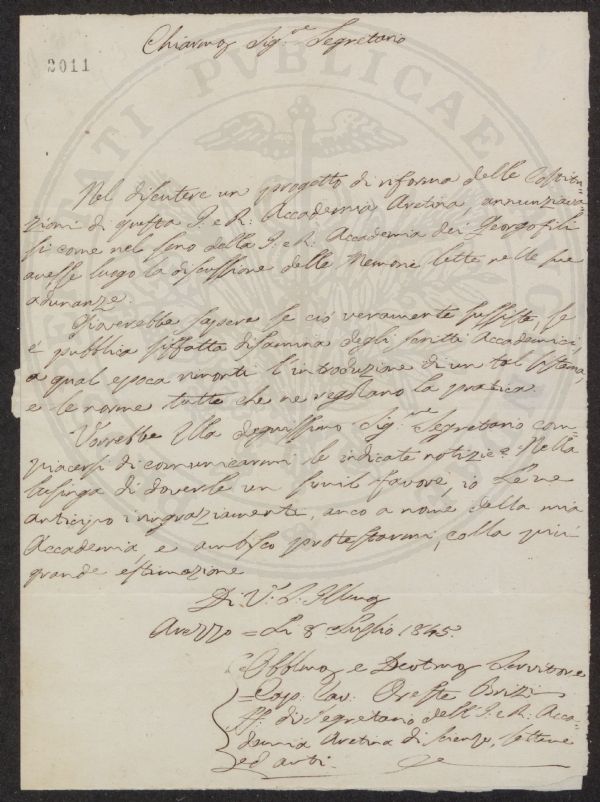 Chiarmo Sig.re Segretario
2011
PROSPERITATI PVBLICAE
Nel discutere un progetto di riforma delle Costitu=
zioni di questa I. e R. Accademia Aretina, annunziava
si come nel seno della I. e R. Accademia dei Georgofili
avesse luogo la discussione delle Memorie lette nelle sue
adunanze.
Gioverebbe sapere se ciò veramente sussista, se
è pubblica siffatta disamina degli scritti Accademici,
a qual epoca rimonti l'introduzione di un tal sistema,
e le norme tutte che ne regolano la pratica.
Vorrebbe Ella degnissimo Sig.re Segretario com
piacersi di comunicarmi le indicate notizie? Nella
lusinga di doverle un simil favore, io Le ne
anticipo i ringraziamente, anco a nome della mia
Accademia, e ambisco protestarmi, colla più
grande estimazione
Di V. S. Illma
Arezzo = Li 8 Luglio 1845.
Obblmo e Devotmo Servitore
= Cav: Oreste Brizi
ff. di Segretario dell'I. e R. Acca=
demia Aretina di Scienze, Lettere
ed arti.